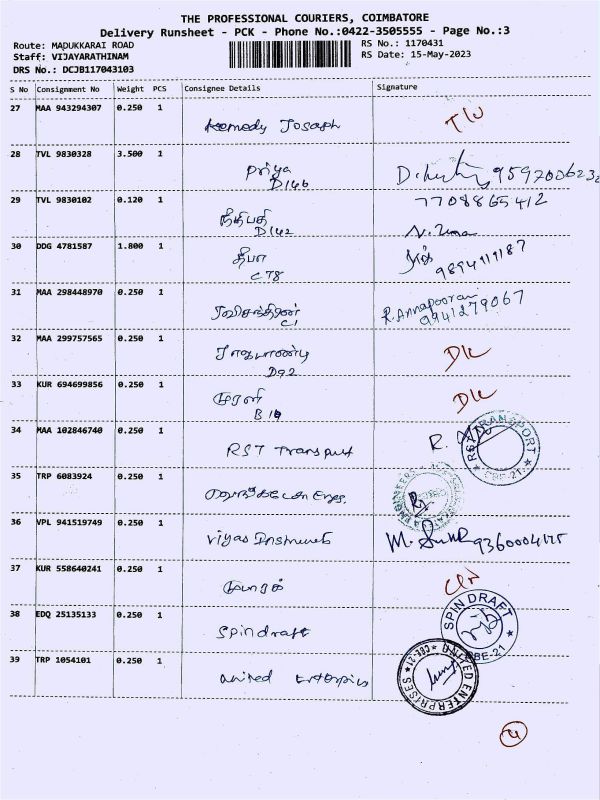 THE PROFESSIONAL COURIERS, COIMBATORE
Delivery Runsheet - PCK - Phone No.:0422-3505555 - Page No.:3
Route: MADUKKARAI ROAD RS No.: 1170431
Staff: VIJAYARATHINAM RS Date: 15-May-2023
DRS No.: DCJB117043103
S No Consignment No Weight PCS Consignee Details Signature
27 MAA 943294307 0.250 1
Kemedy Joseph
28 TVL 9830328 3.500 1
Priya
D146
29 TVL 9830102 0.120 1 7708865412
நீதிபதி
D142
30 DDG 4781587 1.800 1
தீபா
C78
31 MAA 298448970 0.250 1
ரவிசந்திரன் R.Annapoorani
C1 9941279067
32 MAA 299757565 0.250 1
D92 D/L
33 KUR 694699856 0.250 1
முரளி D/L
34 MAA 102846740 0.250 1
RST Transport RST TRANSPORT CBE-21
35 TRP 6083924 0.250 1
36 VPL 941519749 0.250 1
Viyas Instruments
37 KUR 558640241 0.250 1
38 EDQ 25135133 0.250 1
Spindraft SPIN DRAFT CBE-21
39 TRP 1054101 0.250 1
United Enterprises UNITED ENTERPRISES CBE-21